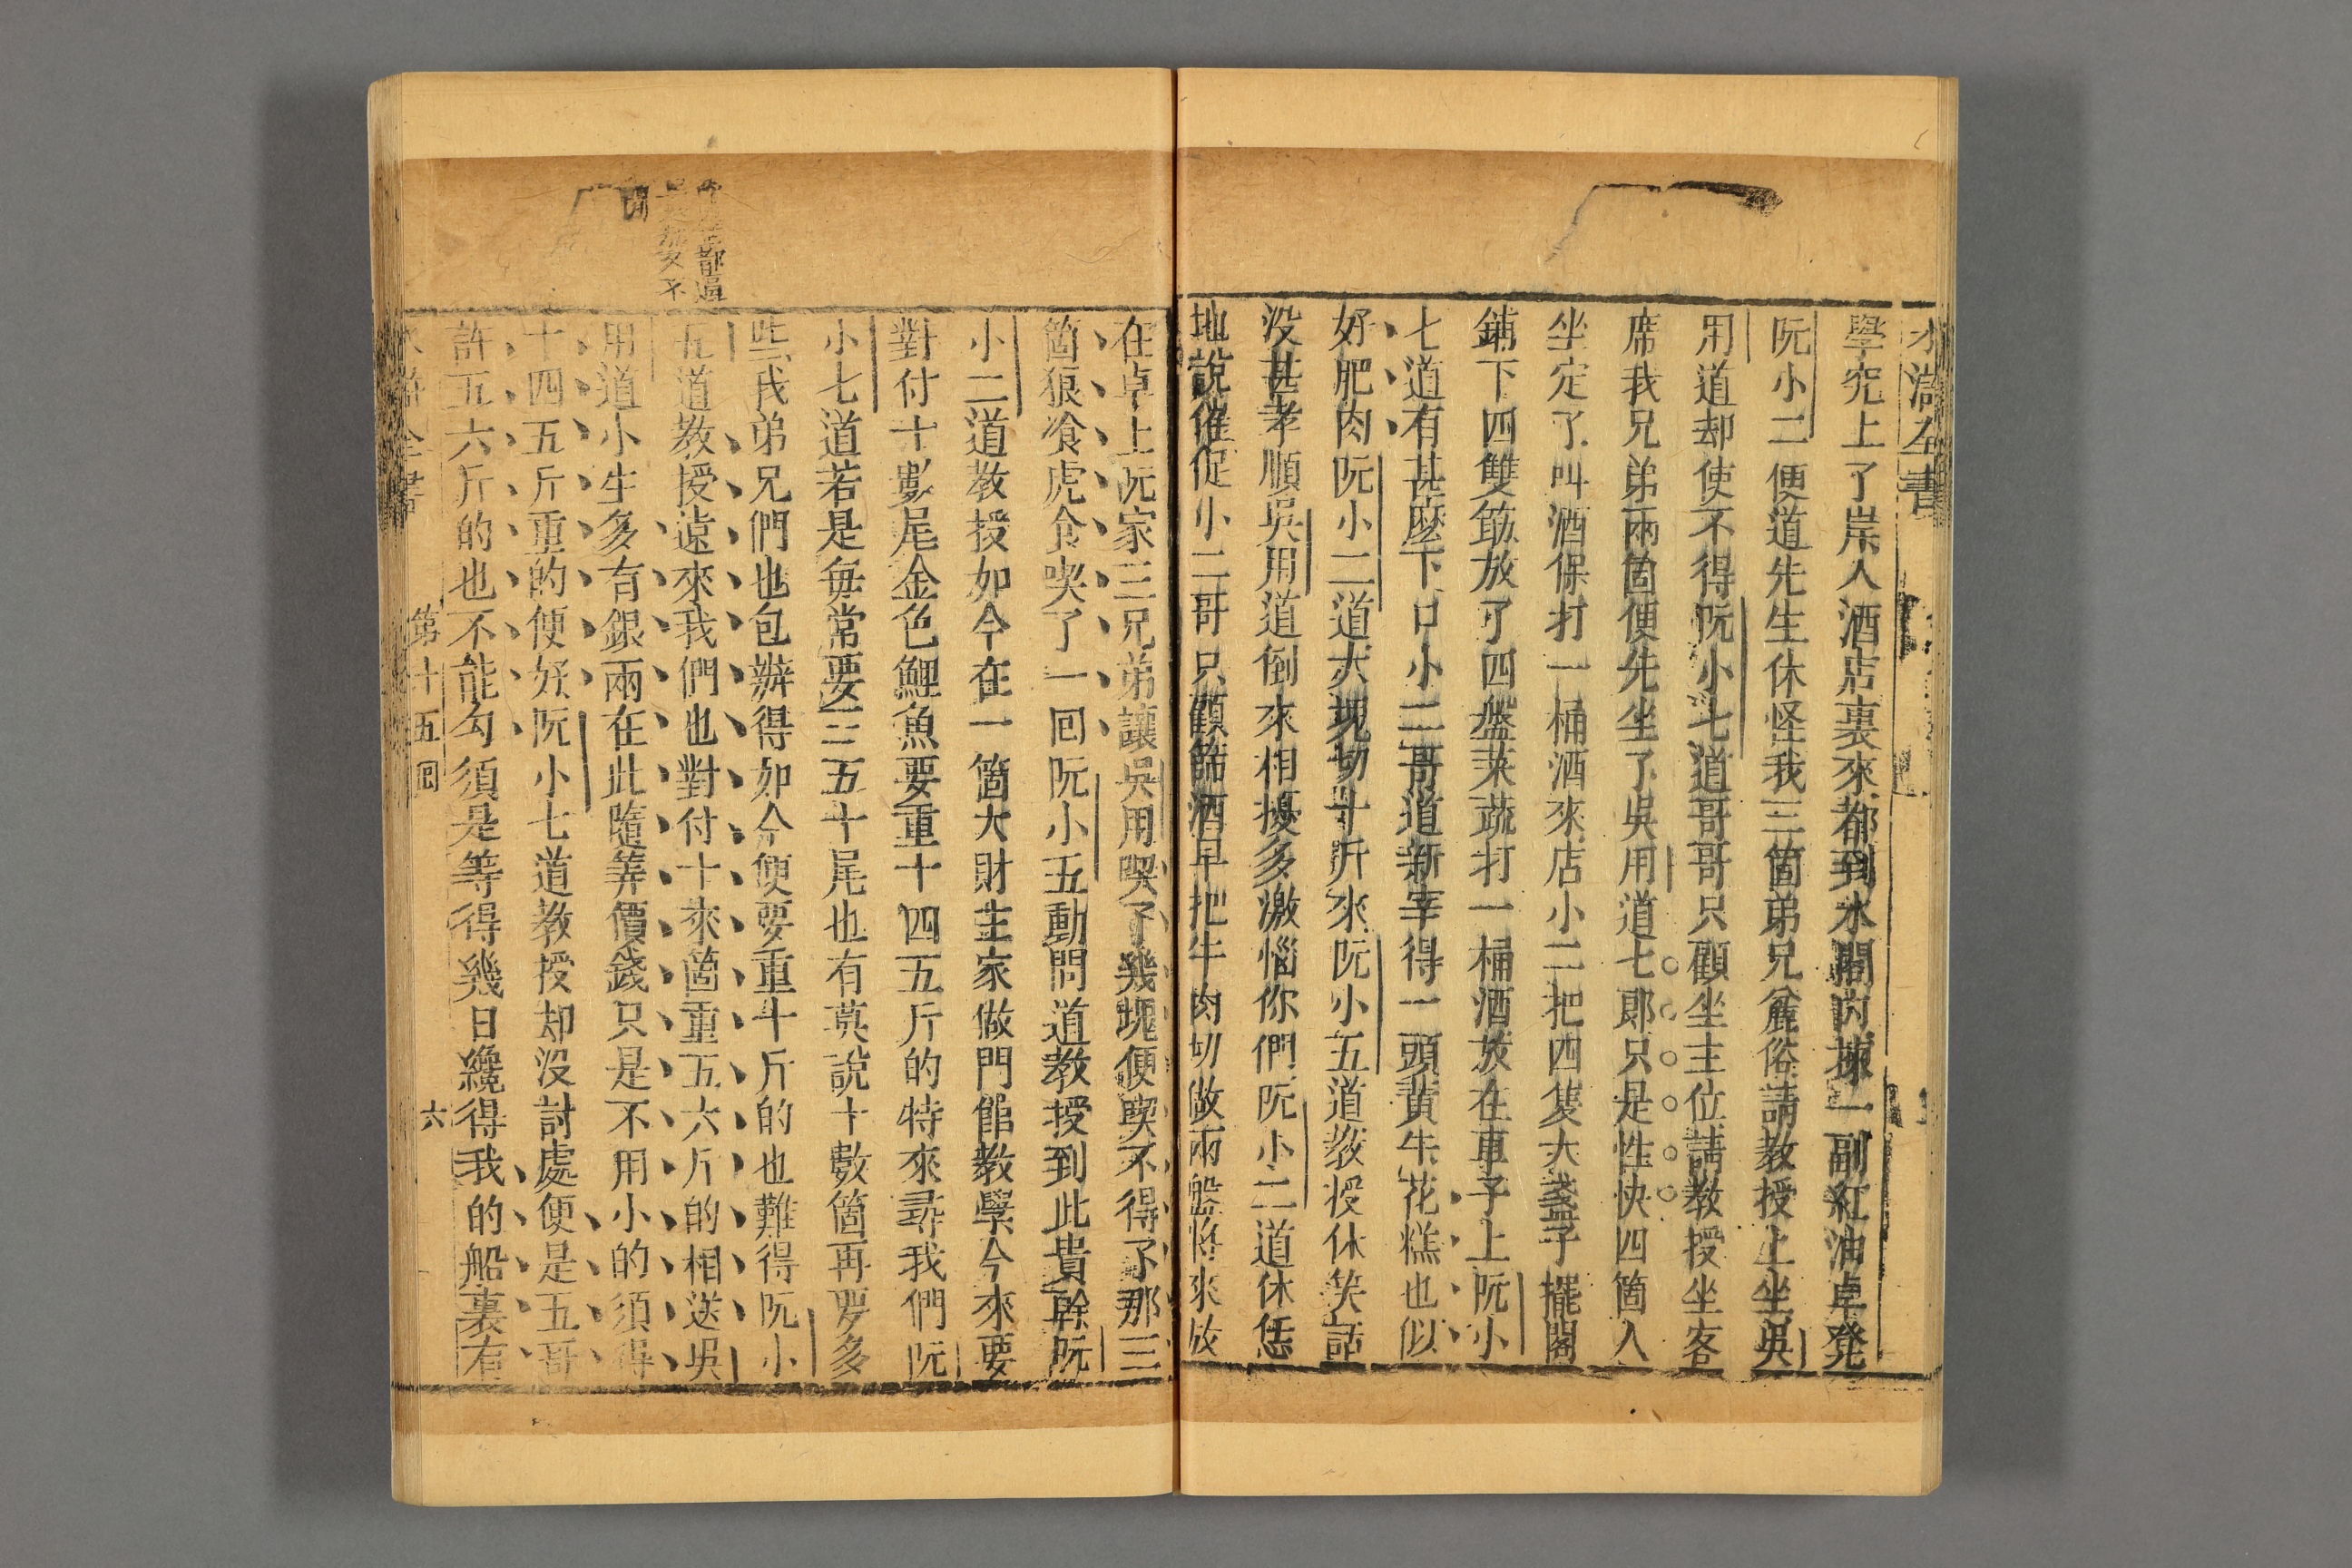 水滸全書
學究上了岸入酒店裏來都到水閣內揀一副紅油卓凳
阮小二便道先生休怪我三箇弟兄麄俗請教授上坐吳
用道却使不得阮小七道哥哥只顧坐主位請教授坐客
席我兄弟兩箇便先坐了吳用道七郎只是性快四箇人
坐定了叫酒保打一桶酒來店小二把四隻大盞子擺開
鋪下四雙筯放了四盤菜蔬打一桶酒放在卓子上阮小
七道有甚麽下口小二哥道新宰得一頭黃牛花糕也似
好肥肉阮小二道大塊切十斤來阮小五道教授休笑話
没甚孝順吳用道倒來相擾多激惱你們阮小二道休恁
地說催促小二哥只顧篩酒早把牛肉切做兩盤將來放
在卓上阮家三兄弟讓吳用喫了幾塊便喫不得了那三
箇狼飡虎食喫了一回阮小五動問道教授到此貴幹阮
小二道教授如今在一箇大財主家做門館教學今來要
對付十數尾金色鯉魚要重十四五斤的特來尋我們阮
小七道若是每常要三五十尾也有莫說十數箇再要多
些我弟兄們也包辦得如今便要重十斤的也難得阮小
五道教授遠來我們也對付十來箇重五六斤的相送吳
用道小生多有銀兩在此隨筭價錢只是不用小的須得
十四五斤重的便好阮小七道教授却没討處便是五哥
許五六斤的也不能勾須是等得幾日纔得我的船裏有
水滸全書
第十五回
六